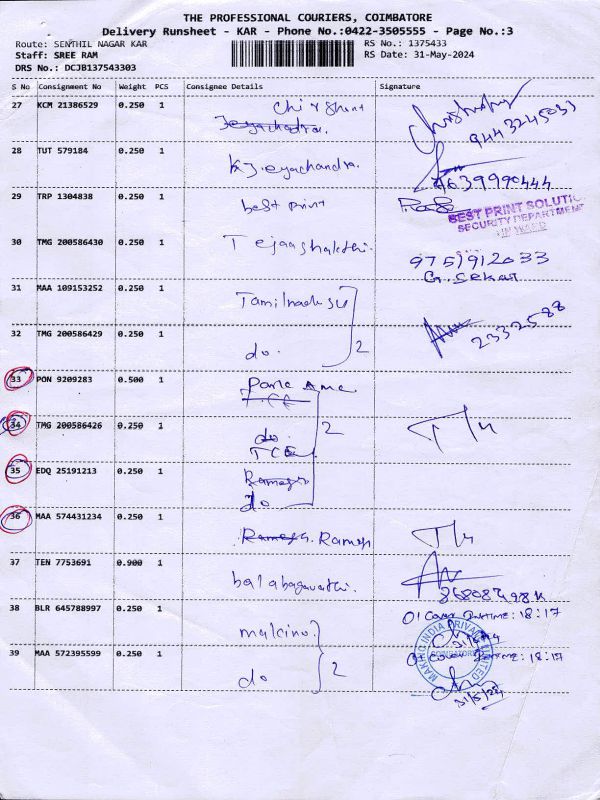 THE PROFESSIONAL COURIERS, COIMBATORE
Delivery Runsheet - KAR - Phone No.:0422-3505555 - Page No.:3
Route: SENTHIL NAGAR KAR
RS No.: 1375433
Staff: SREE RAM
RS Date: 31-May-2024
DRS No.: DCJB137543303
S No Consignment No Weight PCS Consignee Details Signature
27 KCM 21386529 0.250 1
9443245033
28 TUT 579184 0.250 1 K Jeyachandra.
9639990444
29 TRP 1304838 0.250 1 best print
BEST PRINT SOLUTIO
SECURITY DEPARTMENT
INWARD
30 TMG 200586430 0.250 1 Tejaashakthi.
9751912033
G. Sekar
31 MAA 109153252 0.250 1
32 TMG 200586429 0.250 1 do. 2
2332588
33 PON 9209283 0.500 1
34 TMG 200586426 0.250 1 do. 2
TCE
35 EDQ 25191213 0.250 1 Ramesh
do.
36 MAA 574431234 0.250 1 Ramesh
37 TEN 7753691 0.900 1 balabagavathi.
38 BLR 645788997 0.250 1 makino.
01 Cover INTIME: 18:17
39 MAA 572395599 0.250 1 do 2
01 Cover INTIME: 18:17
MAKINO INDIA PRIVATE LIMITED
COIMBATORE
31/5/24